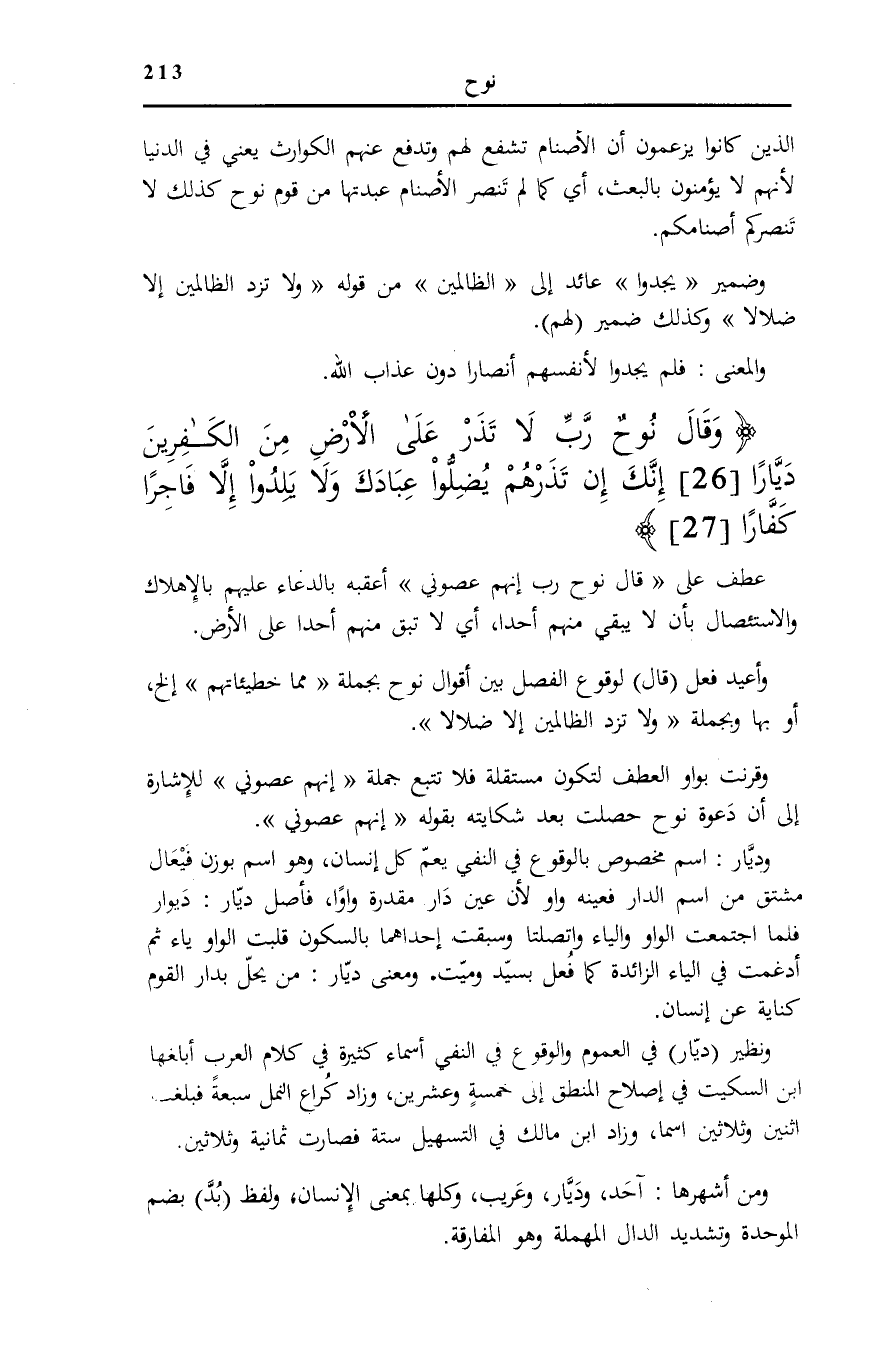 213
نوح
الذين كانوا يزعمون أن الأصنام تشفع لهم وتدفع عنهم الكوارث يعني في الدنيا
لأنهم لا يؤمنون بالبعث، أي كما لم تَنصر الأصنام عبدتها من قوم نوح كذلك لا
تَنصركم أصنامكم.
وضمير « يجدوا » عائد إلى « الظالمين » من قوله « ولا تزد الظالمين إلا
ضلالا » وكذلك ضمير (لهم).
والمعنى : فلم يجدوا لأنفسهم أنصارا دون عذاب الله.
﴿ وَقَالَ نُوحٌ رَّبِّ لَا تَذَرْ عَلَىٰ الْأَرْضِ مِنَ الكَـٰفِرِينَ
دَيَّارًا [26] إِنَّكَ إِن تَذَرْهُمْ يُضِلُّواْ عِبَادَكَ وَلَا يَلِدُواْ إِلَّا فَاجِرًا
كَفَّارًا [27] ﴾
عطف على « قال نوح رب إنهم عصوني » أعقبه بالدعاء عليهم بالإهلاك
والاستئصال بأن لا يبقي منهم أحدا، أي لا تبق منهم أحدا على الأرض.
وأعيد فعل (قال) لوقوع الفصل بين أقوال نوح بجملة « مما خطيئاتهم » إلخ،
أو بها وبجملة « ولا تزد الظالمين إلا ضلالا ».
وقرنت بواو العطف لتكون مستقلة فلا تتبع جملة « إنهم عصوني » للإشارة
إلى أن دَعوة نوح حصلت بعد شكايته بقوله « إنهم عصوني ».
وديَّار : اسم مخصوص بالوقوع في النفي يعمّ كل إنسان، وهو اسم بوزن فَيْعَال
مشتق من اسم الدار فعينه واو لأن عين دَار مقدرة واوًا، فأصل ديّار : دَيوار
فلما اجتمعت الواو والياء واتصلتا وسبقت إحداهما بالسكون قلبت الواو ياء ثم
أدغمت في الياء الزائدة كما فُعل بسيّد وميّت. ومعنى ديّار : من يحلّ بدار القوم
كناية عن إنسان.
ونظير (ديّار) في العموم والوقوع في النفي أسماء كثيرة في كلام العرب أبلغها
ابن السكيت في إصلاح المنطق إلى خمسةٍ وعشرين، وزاد كُراع النمل سبعةً فبلغت
اثنين وثلاثين اسما، وزاد ابن مالك في التسهيل ستة فصارت ثمانية وثلاثين.
ومن أشهرها : آحَد، ودَيَّار، وعَريب، وكلها بمعنى الإنسان، ولفظ (بُدَّ) بضم
الموحدة وتشديد الدال المهملة وهو المفارقة.